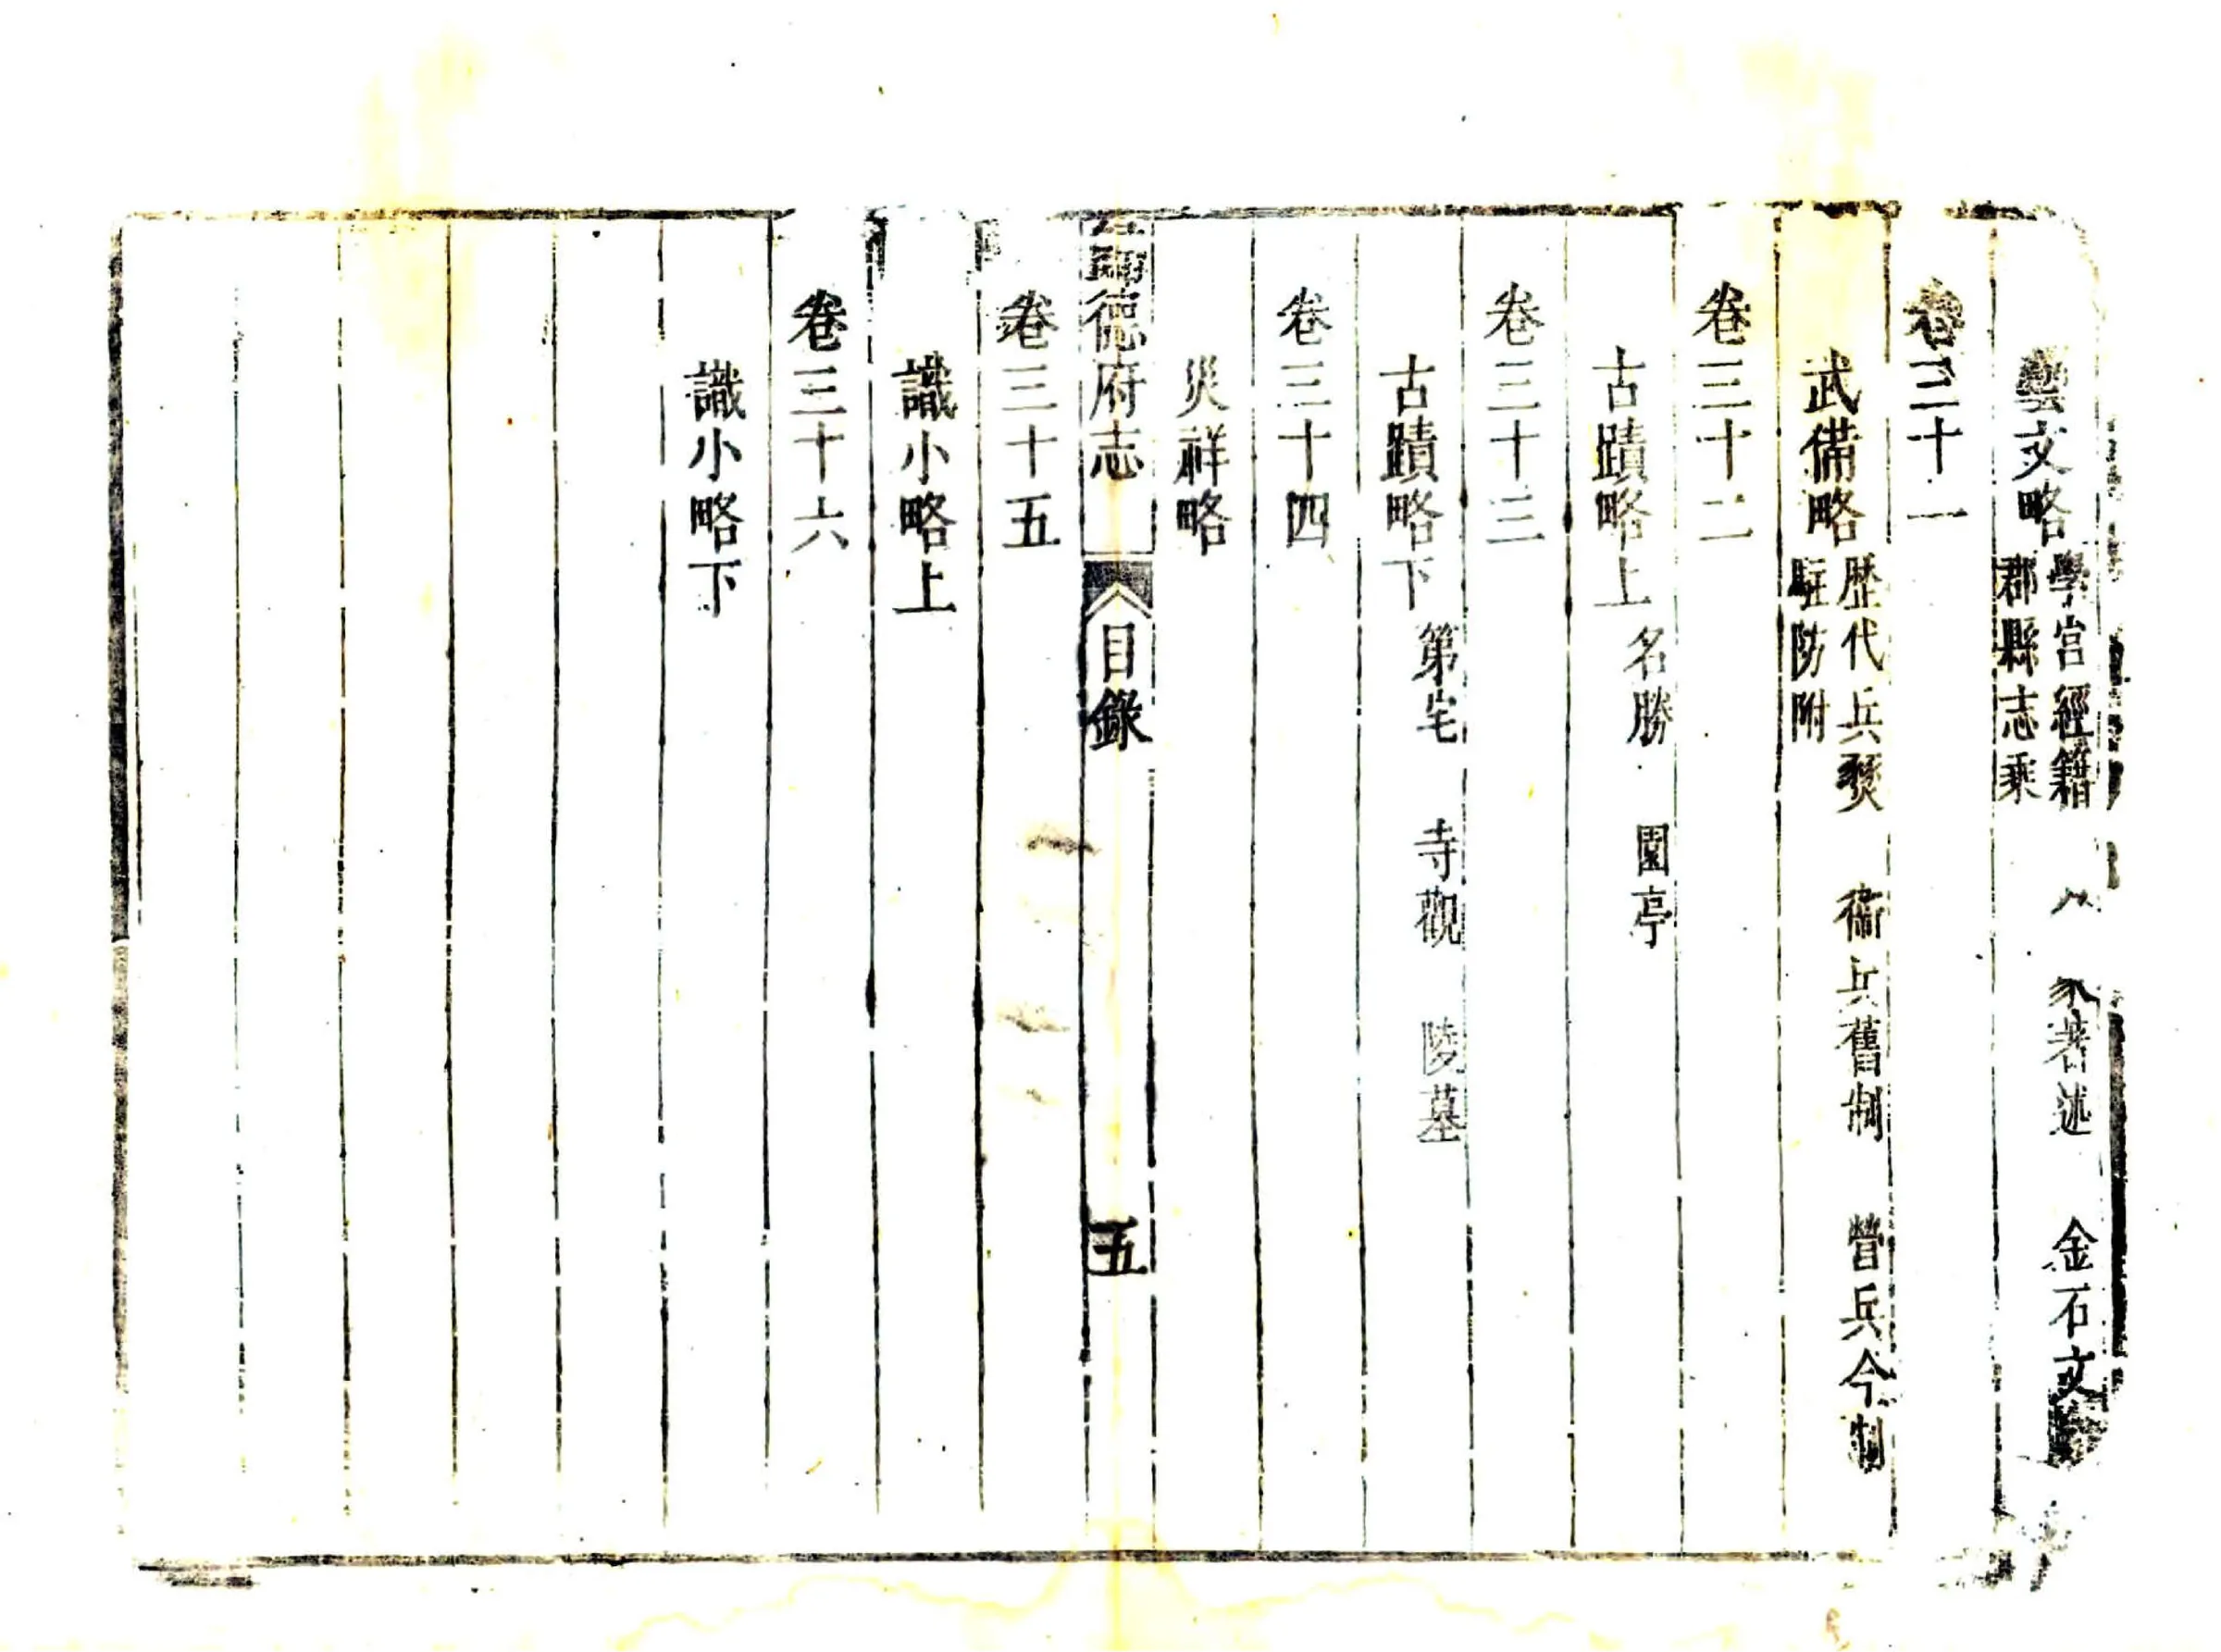 藝文略 學宮經籍 家著述 金石文
郡縣志乘
卷三十一
武備略 歷代兵燹 衞兵舊制 營兵今制
駐防附
卷三十二
古蹟略上 名勝 園亭
卷三十三
古蹟略下 第宅 寺觀 陵墓
卷三十四
災祥略
德府志 目錄 五
卷三十五
識小略上
卷三十六
識小略下